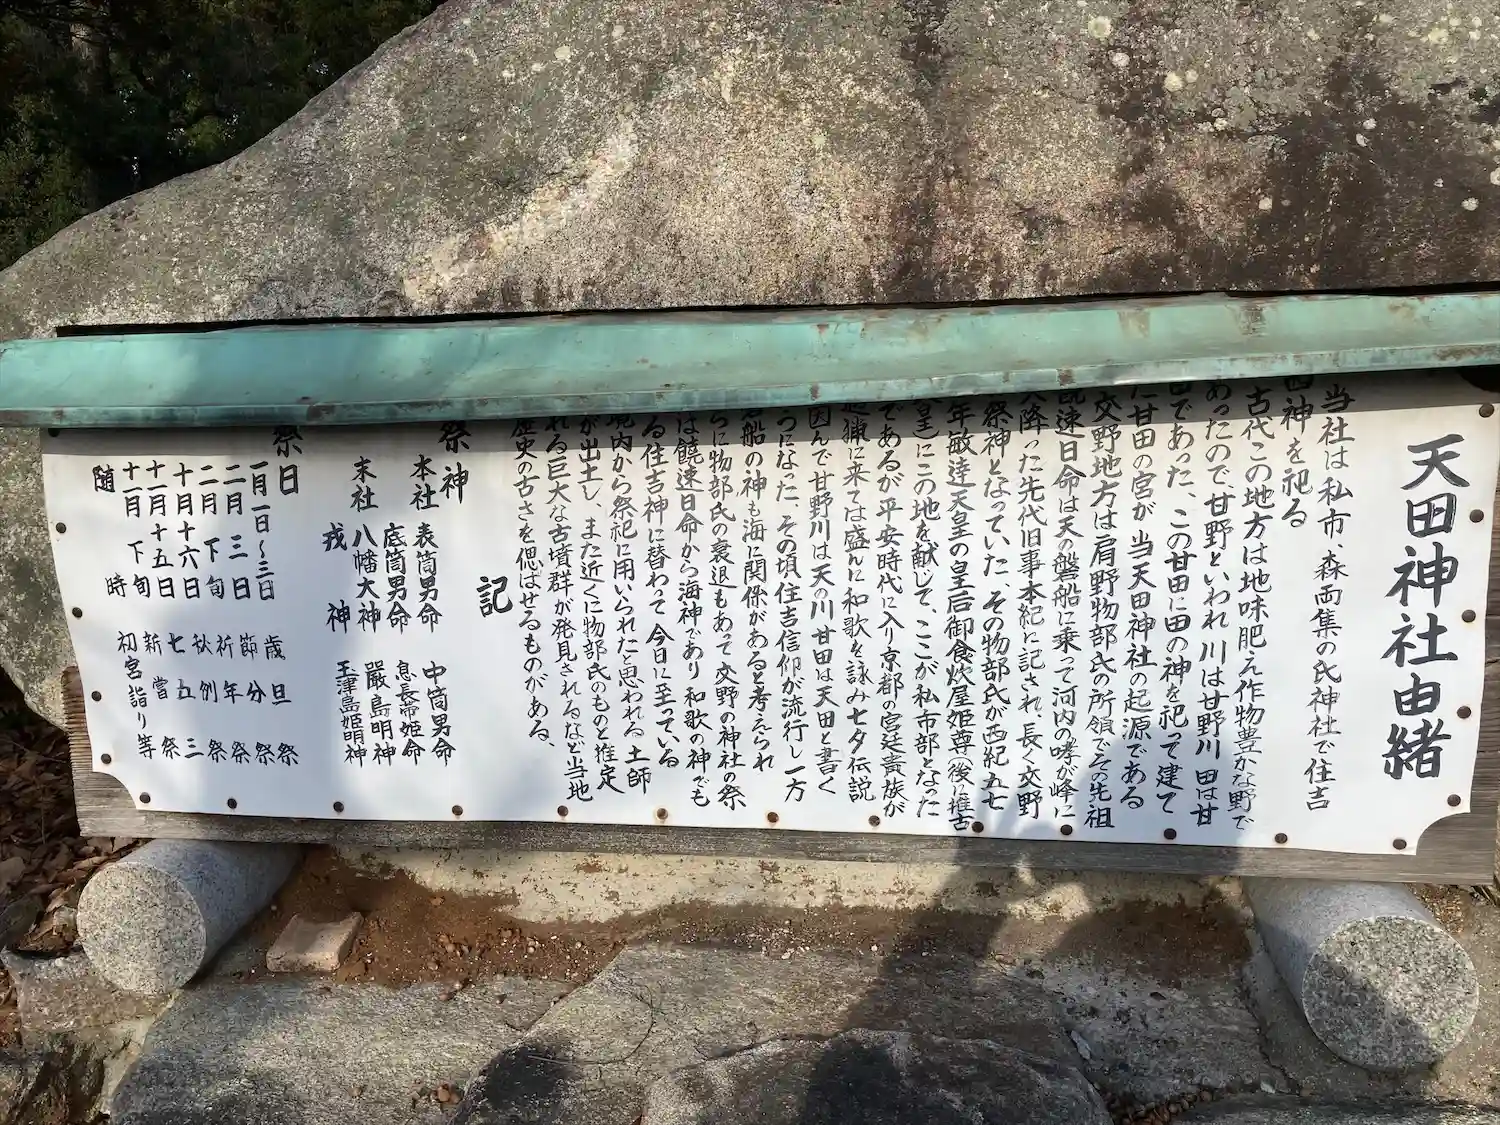 天田神社由緒
当社は私市、森両集の氏神社で住吉
四神を祀る
古代この地方は地味肥え作物豊かな野で
あったので、甘野といわれ 川は甘野川 田は甘
田であった、この甘田に田の神を祀って建て
た甘田の宮が 当天田神社の起源である
交野地方は肩野物部氏の所領でその先祖
饒速日命は天の磐船に乗って河内の哮が峰に
天降った先代旧事本紀に記され、長く交野
の祭神となっていた その物部氏が西紀五七
年敏達天皇の皇后御食炊屋姫尊(後に推古
天皇)にこの地を献じて、ここが私市部となった
であるが平安時代に入り京都の宮廷貴族が
遊猟に来ては盛んに和歌を詠み七夕伝説
因んで甘野川は天の川 甘田は天田と書く
うになった、その頃住吉信仰が流行し一方
船の神も海に関係があると考えられ
らに物部氏の衰退もあって交野の神社の祭
は饒速日命から海神であり 和歌の神でも
る住吉神に替わって今日に至っている
境内から祭祀に用いられたと思われる 土師
が出土し、また近くに物部氏のものと推定
れる巨大な古墳群が発見されるなど当地
歴史の古さを偲ばせるものがある、
記
祭神
本社 表筒男命 中筒男命
底筒男命 息長帯姫命
末社 八幡大神 厳島明神
戎神 玉津島姫明神
祭日
一月一日〜三日 歳旦祭
二月三日 節分祭
二月下旬 祈年祭
十月十六日 秋例祭
十一月十五日 七五三
十一月下旬 新嘗祭
随時 初宮詣り等